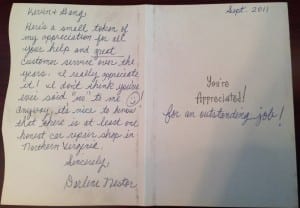 Kevin & Gang
Here's a small token of
my appreciation for all
your help and great
customer service over the
years. I really appreciate
it! I don't think you've
ever said "no" to me ☺!
Anyway, it's nice to know
that there is at least one
honest car repair shop in
Northern Virginia.
Sincerely,
Darlene Nestor
Sept. 2011
You're
Appreciated!
for an outstanding job!